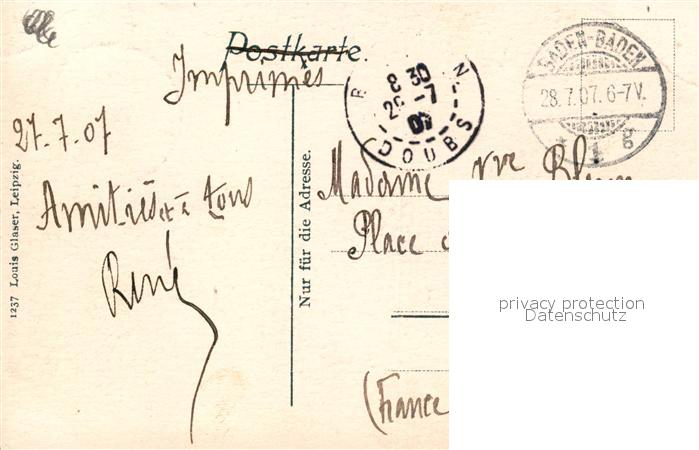 Postkarte.
Imprimés
8 30
7
DOUBS
BADEN-BADEN
28.7.07.6-7V.
* 1 g
27.7.07
Amitiés à tous
René
1237 Louis Glaser, Leipzig.
Nur für die Adresse.
Madame Vve
Place
(France
privacy protection
Datenschutz